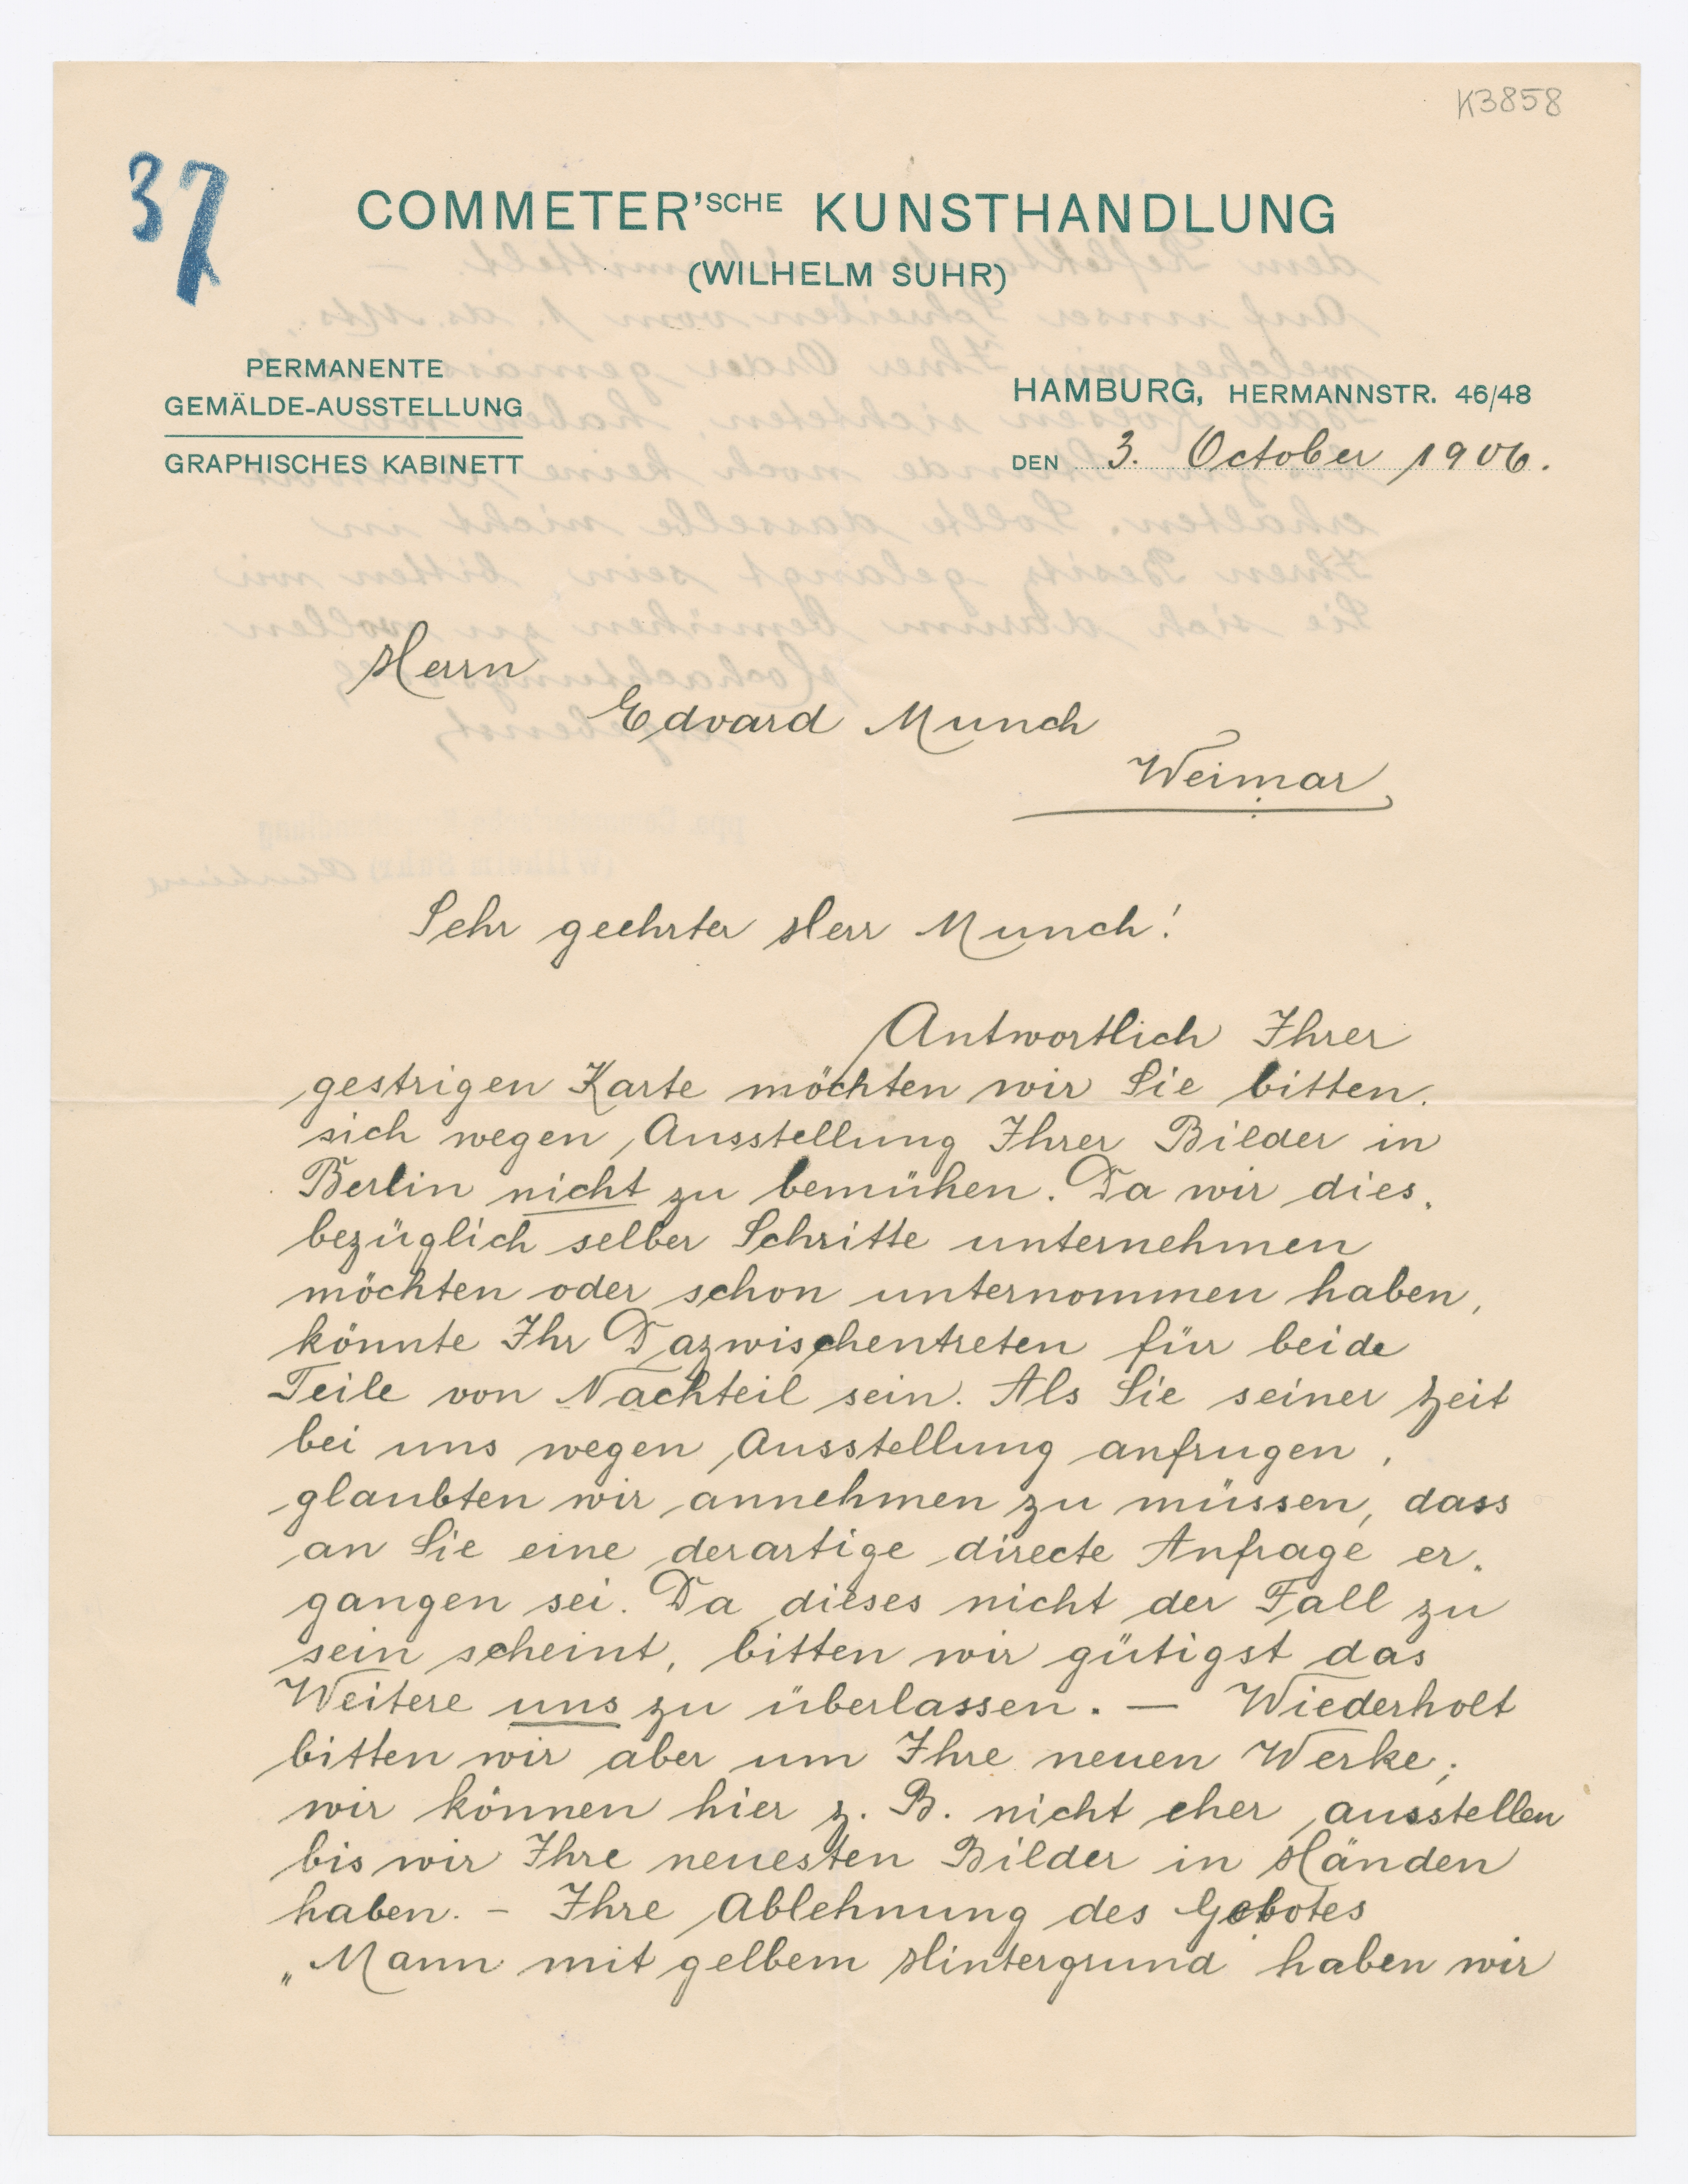 K3858
37
COMMETER'SCHE KUNSTHANDLUNG
(WILHELM SUHR)
PERMANENTE
GEMÄLDE-AUSSTELLUNG
GRAPHISCHES KABINETT
HAMBURG, HERMANNSTR. 46/48
DEN 3. October 1906.
Herrn
Edvard Munch
Weimar
Sehr geehrter Herr Munch!
Antwortlich Ihrer
gestrigen Karte möchten wir Sie bitten.
sich wegen Ausstellung Ihrer Bilder in
Berlin nicht zu bemühen. Da wir dies„
bezüglich selber Schritte unternehmen
möchten oder schon unternommen haben,
könnte Ihr Dazwischentreten für beide
Teile von Nachteil sein. Als Sie seiner Zeit
bei uns wegen Ausstellung anfrugen,
glaubten wir annehmen zu müssen, dass
an Sie eine derartige directe Anfrage er„
gangen sei. Da dieses nicht der Fall zu
sein scheint, bitten wir gütigst das
Weitere uns zu überlassen. — Wiederholt
bitten wir aber um Ihre neuen Werke;
wir können hier z. B. nicht eher ausstellen
bis wir Ihre neuesten Bilder in Händen
haben. – Ihre Ablehnung des Gebotes
„Mann mit gelbem Hintergrund haben wir